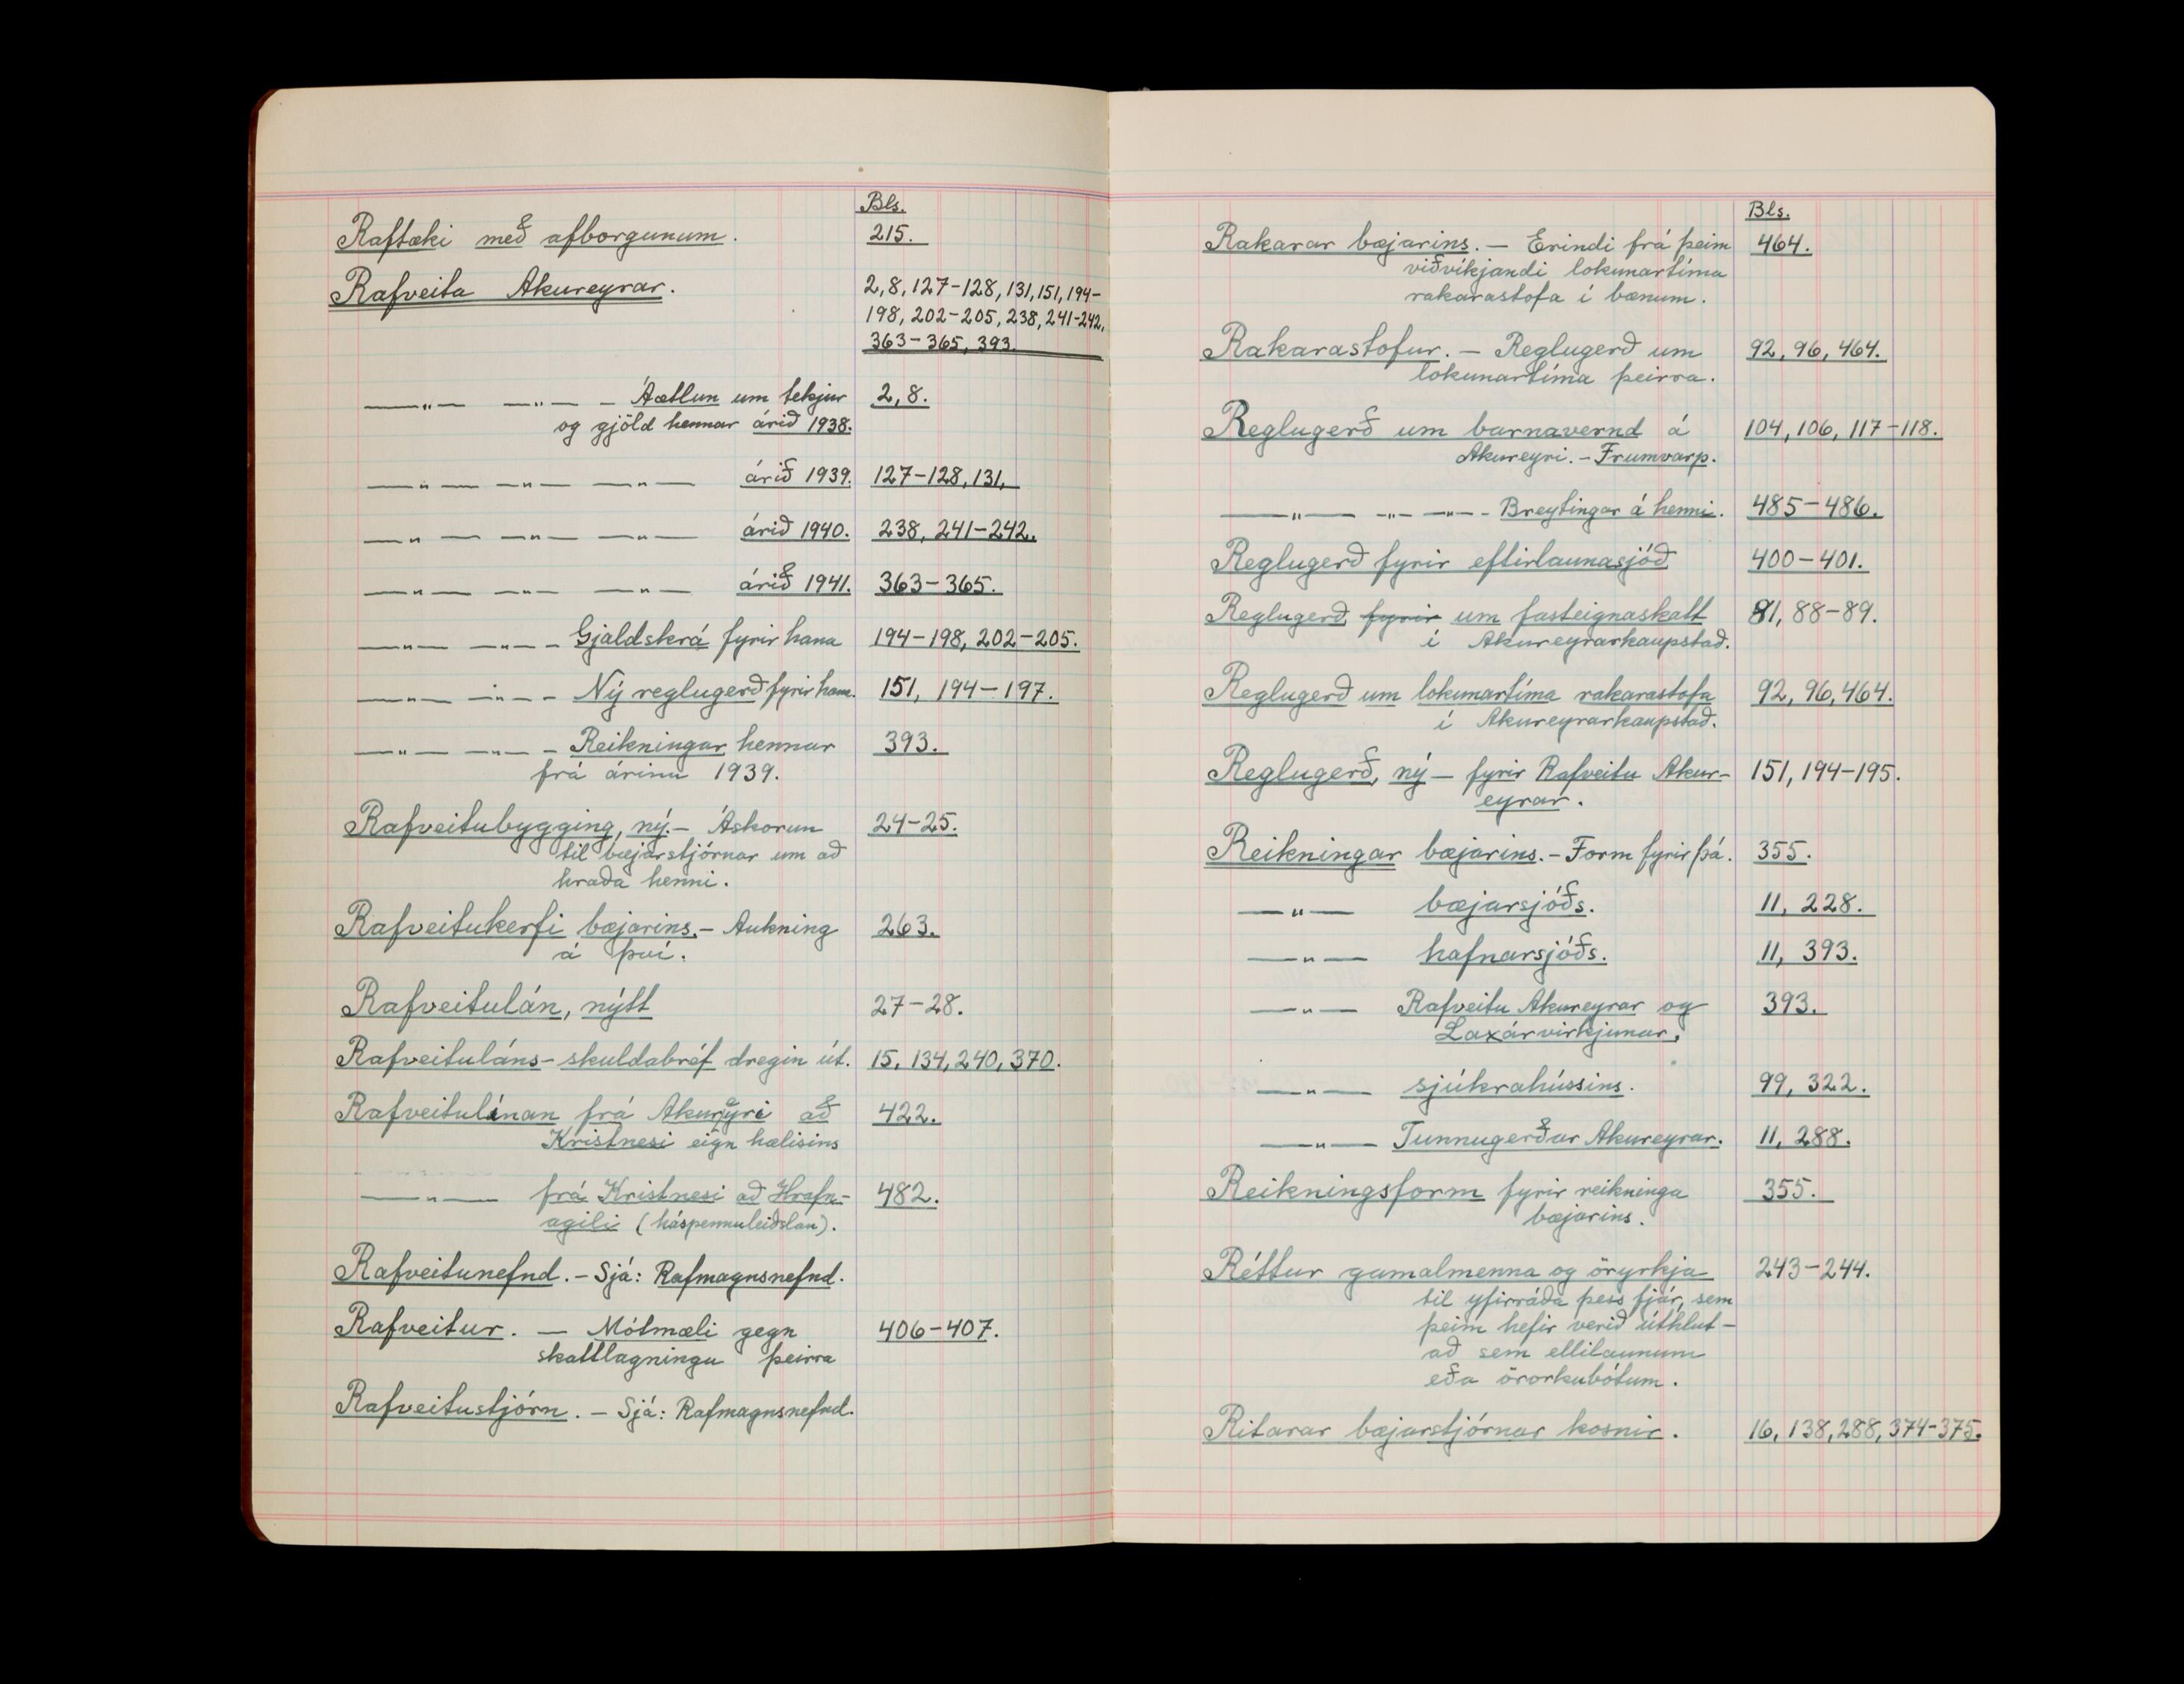 Bls.
Raftæki með afborgunum. 215.
Rafveita Akureyrar. 2, 8, 127-128, 131, 151, 194-
198, 202-205, 238, 241-242,
363-365, 393.
—"— —"— - Áætlun um tekjur 2, 8.
og gjöld hennar árið 1938.
—"— —"— —"— árið 1939. 127-128, 131.
—"— —"— —"— árið 1940. 238, 241-242.
—"— —"— —"— árið 1941. 363-365.
—"— —"— - Gjaldskrá fyrir hana 194-198, 202-205.
—"— —"— - Ný reglugerð fyrir hana. 151, 194-197.
—"— —"— - Reikningar hennar 393.
frá árinu 1939.
Rafveitubygging, ný. - Áskorun 24-25.
til bæjarstjórnar um að
hraða henni.
Rafveitukerfi bæjarins. - Aukning 263.
á því.
Rafveitulán, nýtt 27-28.
Rafveituláns-skuldabréf dregin út. 15, 134, 240, 370.
Rafveitulínan frá Akureyri að 422.
Kristnesi eign hælisins
—"— frá Kristnesi að Hrafn- 482.
agili (háspennuleiðslan).
Rafveitunefnd. - Sjá: Rafmagnsnefnd.
Rafveitur. — Mótmæli gegn 406-407.
skattlagningu þeirra
Rafveitustjórn. - Sjá: Rafmagnsnefnd.
Bls.
Rakarar bæjarins. - Erindi frá þeim 464.
viðvíkjandi lokunartíma
rakarastofa í bænum.
Rakarastofur. - Reglugerð um 92, 96, 464.
lokunartíma þeirra.
Reglugerð um barnavernd á 104, 106, 117-118.
Akureyri. - Frumvarp.
—"— —"— —"— - Breytingar á henni. 485-486.
Reglugerð fyrir eftirlaunasjóð 400-401.
Reglugerð fyrir um fasteignaskatt 81, 88-89.
í Akureyrarkaupstað.
Reglugerð um lokunartíma rakarastofa 92, 96, 464.
í Akureyrarkaupstað.
Reglugerð, ný - fyrir Rafveitu Akur- 151, 194-195.
eyrar.
Reikningar bæjarins. - Form fyrir þá. 355.
—"— bæjarsjóðs. 11, 228.
—"— hafnarsjóðs. 11, 393.
—"— Rafveitu Akureyrar og 393.
Laxárvirkjunar.
—"— sjúkrahússins. 99, 322.
—"— Tunnugerðar Akureyrar. 11, 288.
Reikningsform fyrir reikninga 355.
bæjarins.
Réttur gamalmenna og öryrkja 243-244.
til yfirráða þess fjár, sem
þeim hefir verið úthlut-
að sem ellilaunum
eða örorkubótum.
Ritarar bæjarstjórnar kosnir. 16, 138, 288, 374-375.